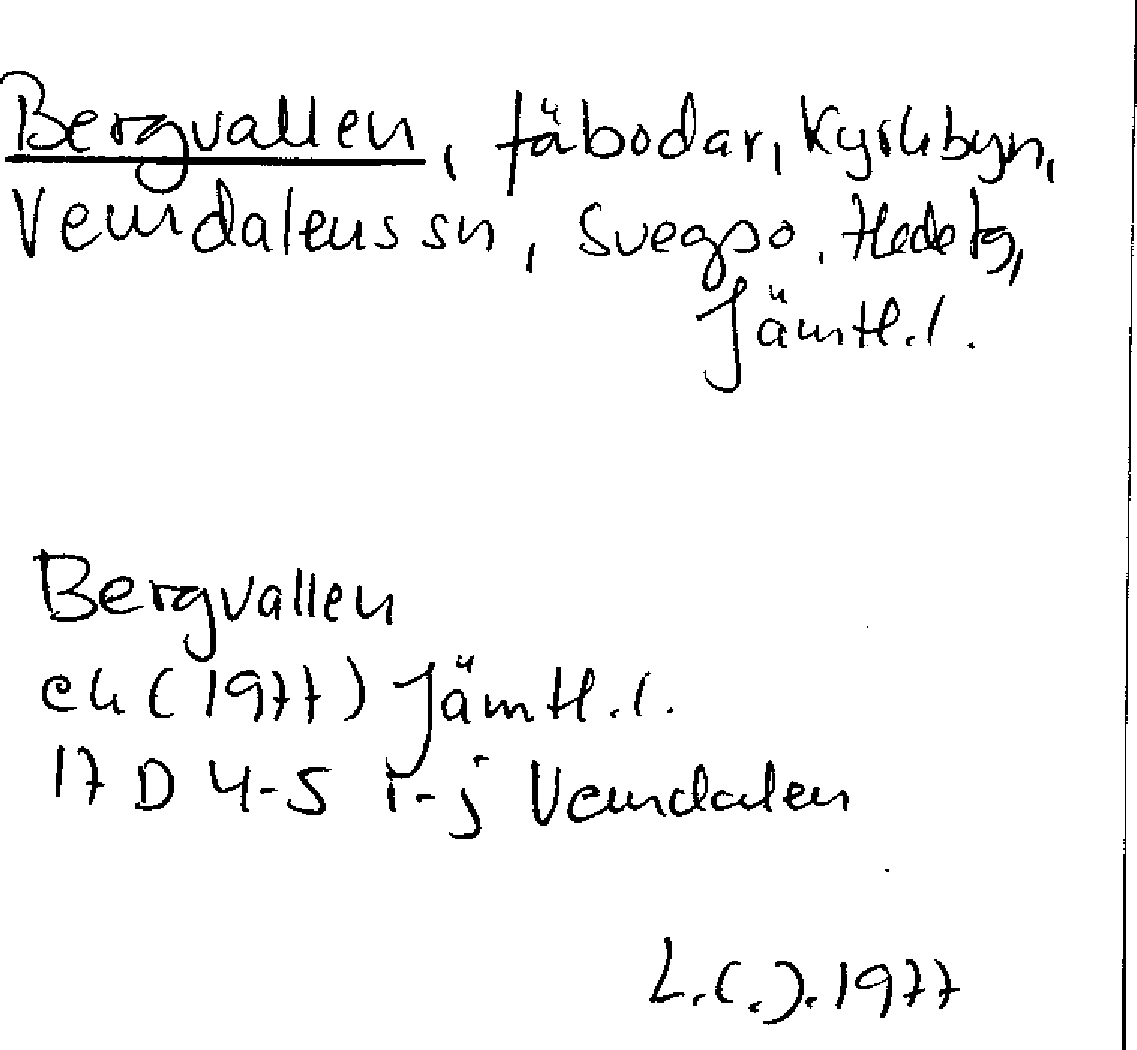 Bergvallen, fäbodar, Kyrkbyn,
Vemdalens sn, Svegs so, Hede tg,
Jämtl. l.
Bergvallen
ek (1977) Jämtl. l.
17 D 4-5 i-j Vemdalen
1977